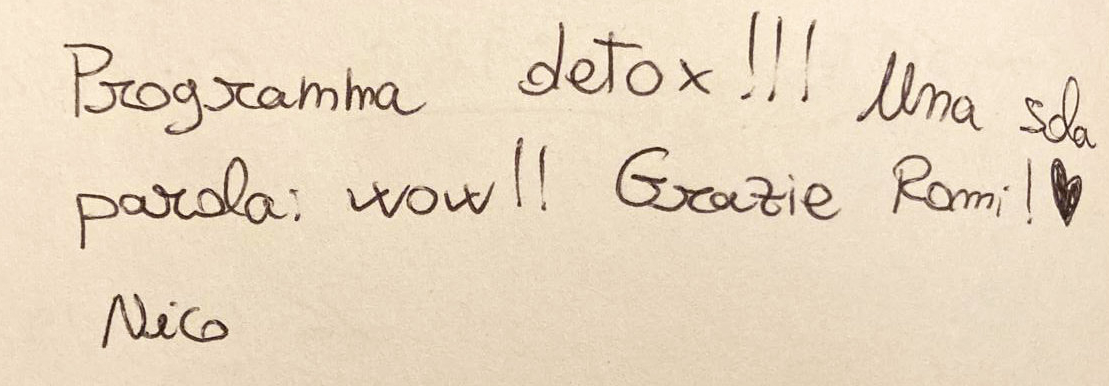 Programma detox!!! Una sola
parola: wow!! Grazie Romi!♥
Nico